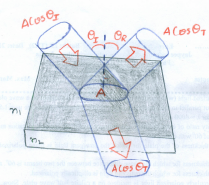 A cosθ_I
θ_I θ_R
A cosθ_r
A
n₁
n₂
A cosθ_T